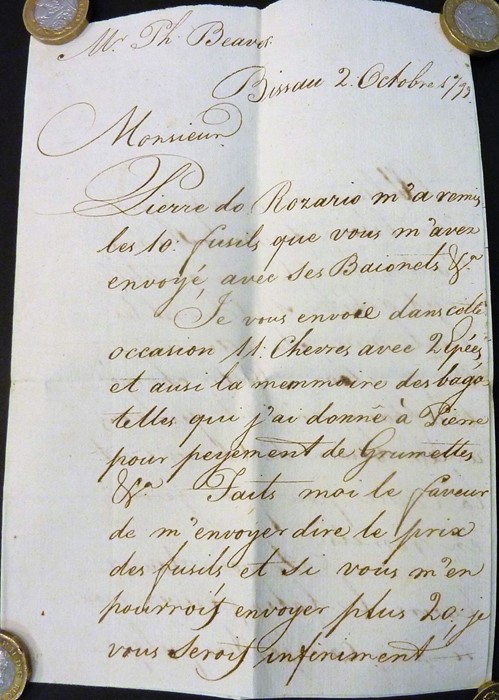 Mr. Ph. Beaver
Bissau 2. Octobre 1793
Monsieur
Pierre do Rozario m'a remis
les 10: fusils que vous m'avez
envoyé avec ses Baionets &.a
Je vous envoie dans cette
occasion 11: Chevres avec 2 Epées,
et ausi la memmoire des baga-
telles qui j'ai donnê à Pierre
pour peyement de Grumettes
&.a Faits moi le faveur
de m'envoyer dire le prix
des fusils, et si vous m'en
pourroiſ envoyer plus 20: je
vous seroiſ infiniment